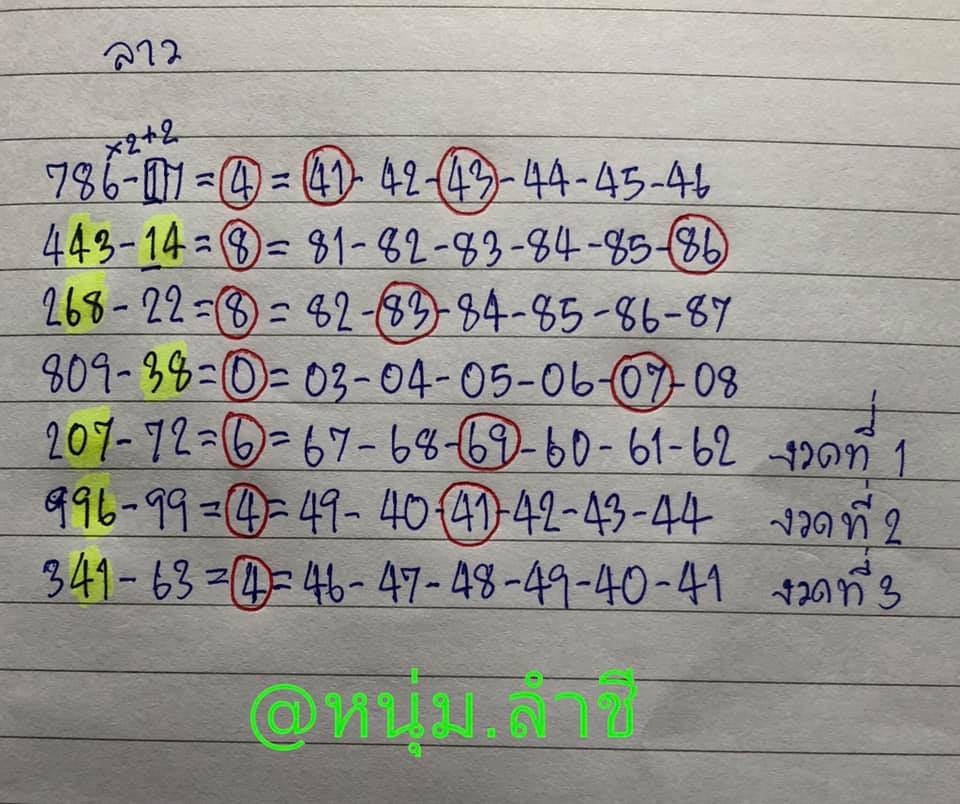 ลาว
×2+2
786-17=4=41-42-43-44-45-46
443-14=8=81-82-83-84-85-86
268-22=8=82-83-84-85-86-87
809-38=0=03-04-05-06-07-08
207-72=6=67-68-69-60-61-62 งวดที่ 1
996-99=4=49-40-41-42-43-44 งวดที่ 2
341-63=4=46-47-48-49-40-41 งวดที่ 3
@หนุ่ม.ลำชี